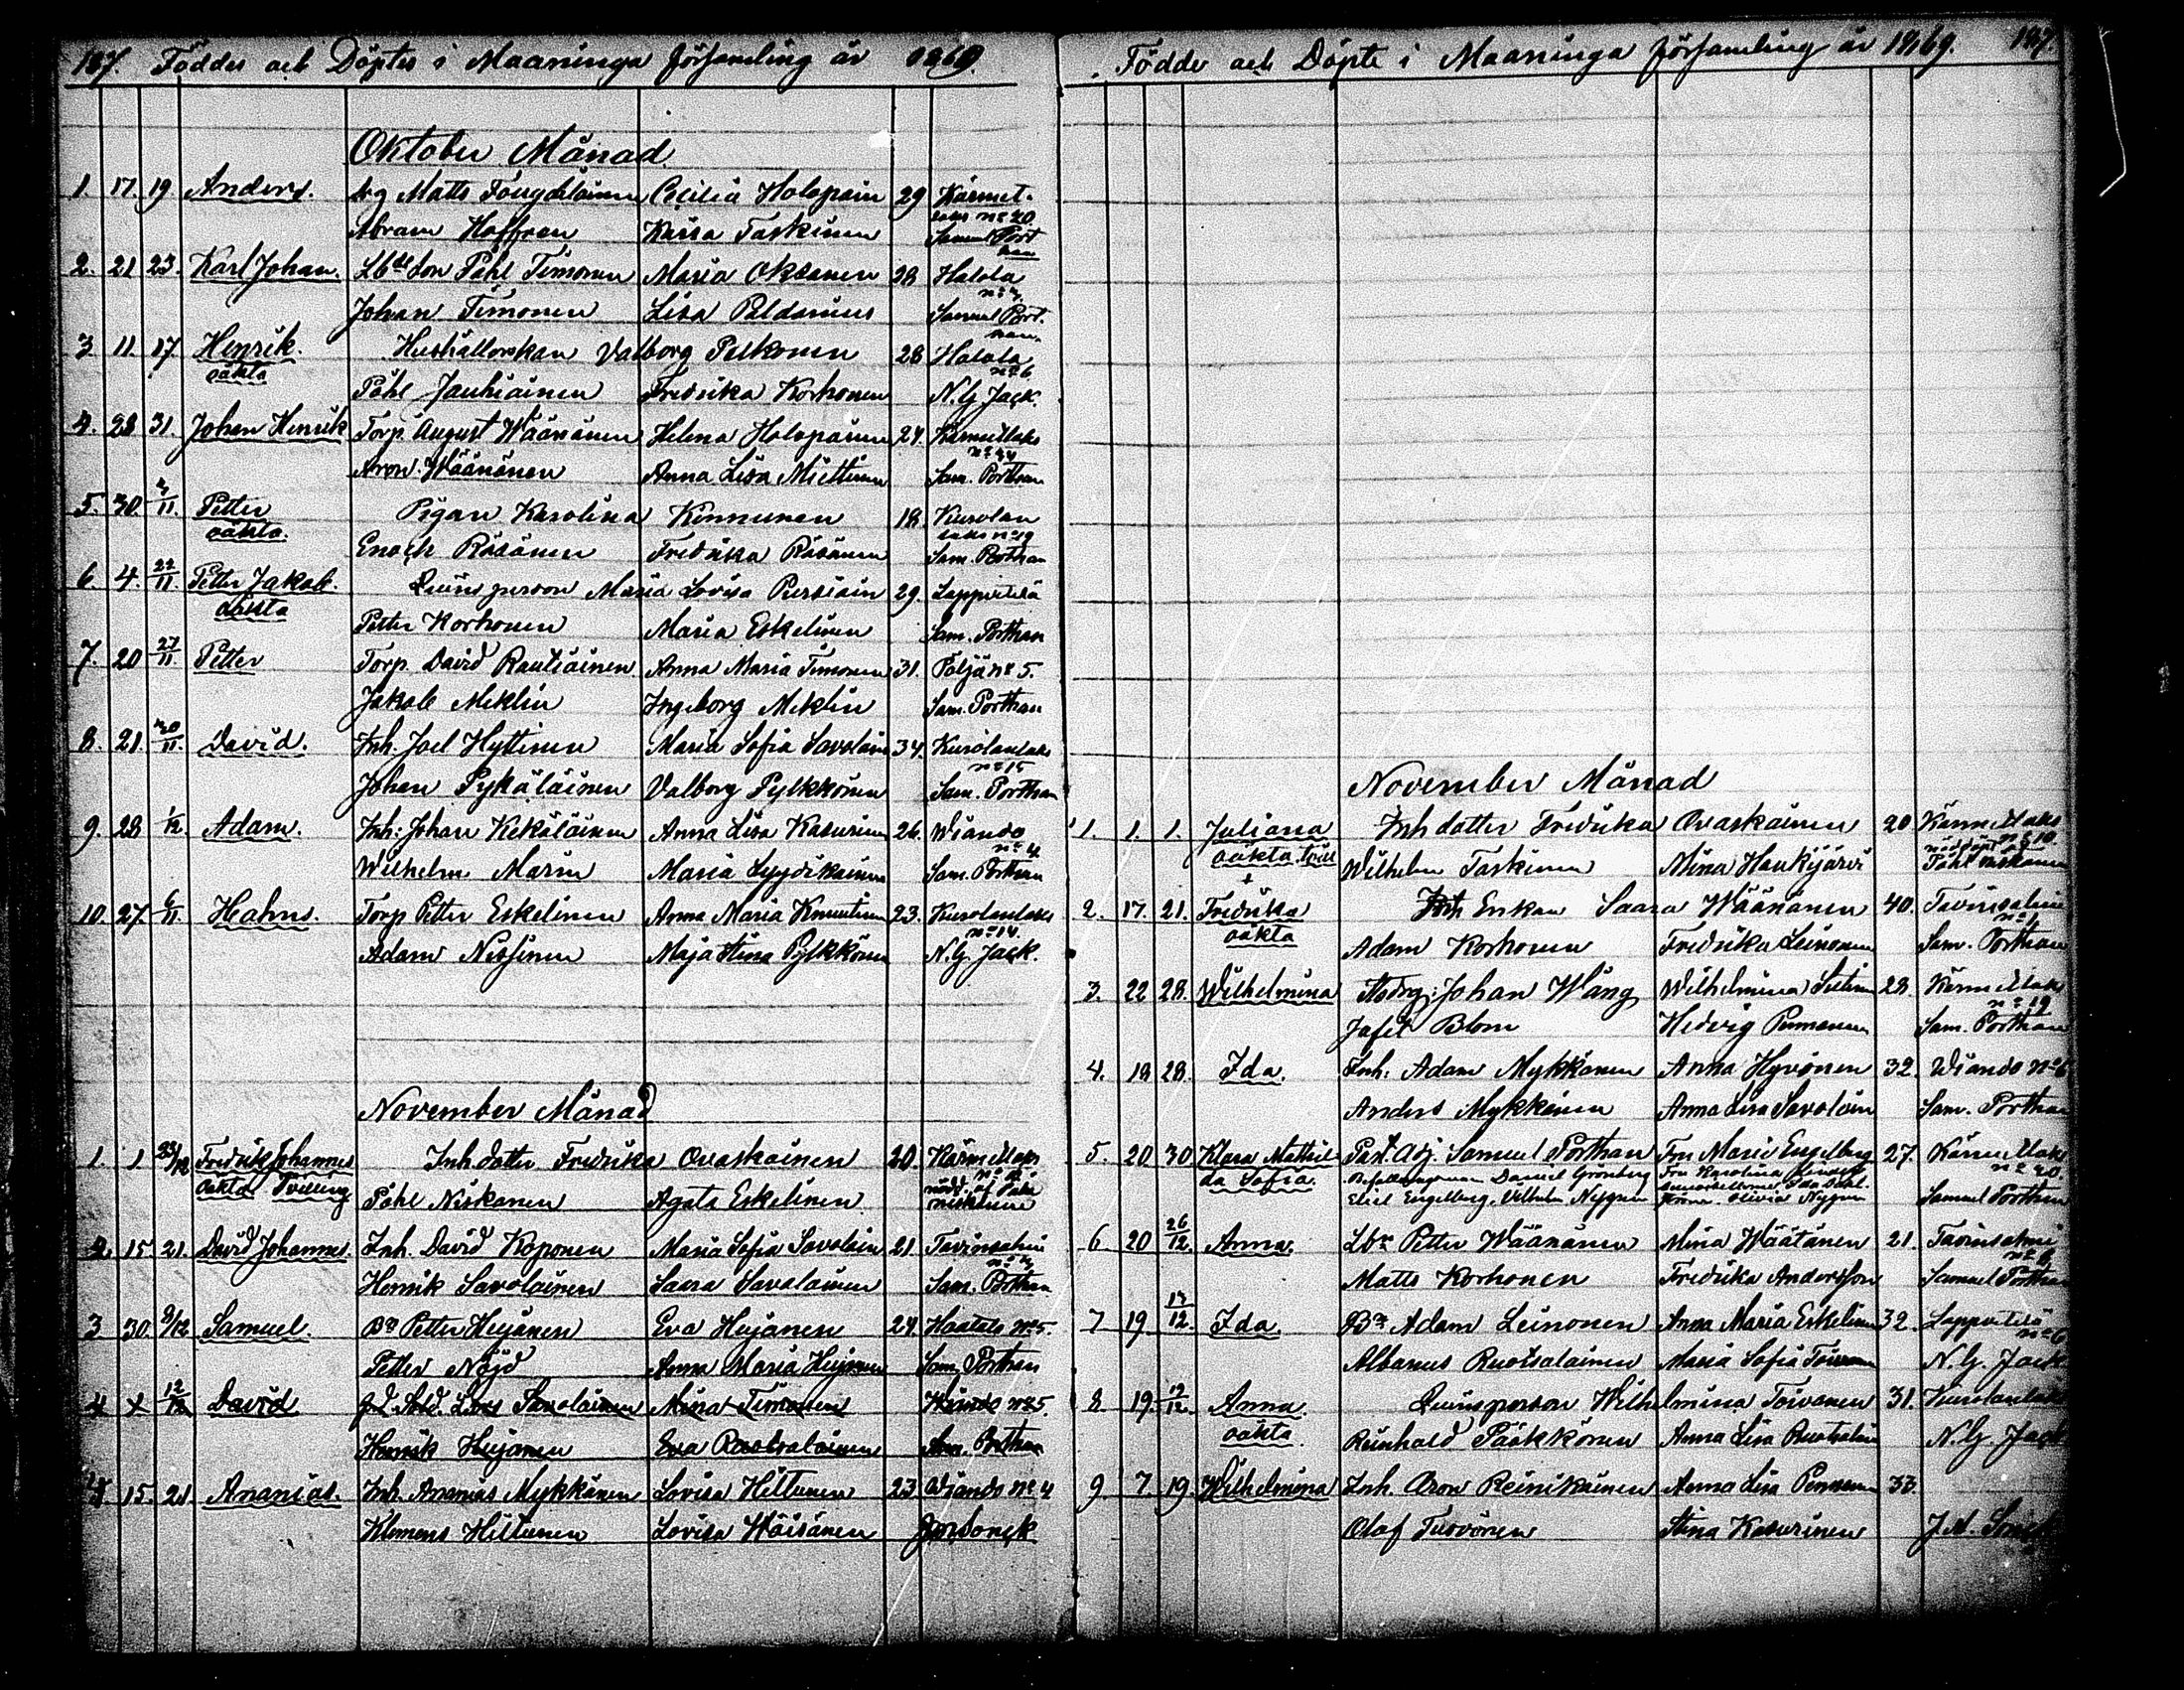 187. Föddes och Döptes i Maaninga församling år 1869.
Oktober Månad
1. 17. 19 Anders. Matts Cecilia Holopain 29 Kärmet-
laks no 20
Abram Hoffren Kaisa Taskinen Samuel Port
han
2. 21 23. Karl Johan. Lbde Son Påhl Timonen Maria Oksanen 28 Halola
Johan Timonen Lisa Paldanius Samuel Port-
han
3 11. 17. Henrik. Hushållerskan Valborg Pelkonen 28 Halola
oäkta no 6
Påhl Jauhiainen Fredrika Korhonen N. G. Jack.
4. 28 31. Johan Henrik Torp. August Wäänänen Helena Holopainen 24. Kärmetlaks
Aron Wäänänen Anna Lisa Miettinen Sam. Porthan
5. 30. 3/11. Petter Pigan Karolina Kinnunen 18. Kurolan
oäkta. laks no 19
Enoch Räsänen Fredrika Räsänen Sam. Porthan
6. 4. 22/11. Petter Jakob. Qvinsperson Maria Lovisa Pursiain 29. Lappetelä
oäkta
Petter Korhonen Maria Eskelinen Sam. Porthan
7. 20 27/11 Petter Torp. David Rautiainen. Anna Maria Timonen 31. Pöljä no 5.
Jakob Miklin Ingeborg Miklin Sam. Porthan
8. 21. 30/11. David. Inh. Joel Hyttinen Maria Sofia Savolain 34. Kurolanlaks
no 15
Johan Pykäläinen Valborg Pylkkönen Sam. Porthan
9. 28 1/12 Adam. Inh: Johan Kekäläinen Anna Lisa Kasurinen 26. Wiando
no 4
Wilhelm Marin Maria Lyydikainen Sam. Porthan
10. 27. 6/11 Hahns. Torp Petter Eskelinen Anna Maria 23. Kurolanlaks
no 14.
Adam Nissinen Maja Stina Pylkkönen N. G. Jack.
November Månad
1. 1 Fredrik Johannes Inh dotter Fredrika Ovaskainen 20. Kärmetlaks
oäkta Tvilling
Påhl Niskanen Agata Eskelinen
2. 15. 21. David Johannes. Inh. David Koponen Maria Sofia Savolain 21. Tavinsalmi
Henrik Savolainen Saara Savolainen Sam. Porthan
3 30. 8/12 Samuel. Bn Petter Hujanen Eva Hujanen 24. Haatala no 5.
Petter Nöjd Anna Maria Hujanen Sam. Porthan
4 12/12 David Lars Savolainen Mina Timonen Wiando no 5.
Henrik Hujanen Eva Ruotsalainen Sam. Porthan
4 15. 21 Ananias. Inh. Ananias Mykkänen Lovisa Hiltunen 23 Wiando no 4
Klemens Hiltunen Lovisa Wäisänen
Födde och Döpte i Maaninga församling år 1869. 187.
November Månad
1. 1. 1. Juliana Inh dotter Fredrika Ovaskainen 20 Kärmetlaks
oäkta tvill no 10
Wilhelm Taskinen Mina Haukijärvi Påhl Niskanen
2. 17. 21. Fredrika Enkan Saara Wäänänen 40. Tavinsalmi
oäkta no 1.
Adam Korhonen Fredrika Leinonen Sam. Porthan
3. 22 28. Wilhelmina Johan Wäng Wilhelmina 28. Kärmetlaks
no 19
Jafet Blom Hedvig Pennanen Sam. Porthan
4. 18 28. Ida. Inh: Adam Mykkänen Anna Hyvönen 32. Wiando no 6
Anders Mykkänen Anna Lisa Savolain Sam. Porthan
5. 20 30 Klara Mathil- Past. Adj. Samuel Porthan Fru Marie Engelberg 27. Kärmetlaks
da Sofia. Daniel Grönberg Fru Karolina no 20.
Eliel Engelberg, Vilhelm Nygren Olivia Nygren Samuel Porthan
6 20 26/12. Anna. Lbr Petter Wäänänen Mina Väätänen 21. Tavinsalmi
Matts Korhonen Fredrika Andersson Samuel Porthan
7 19 13/12. Ida Bn Adam Leinonen Anna Maria Eskelinen 32. Lappetelä
no 6
Albanus Ruotsalainen Maria Sofia N. G. Jack
8. 19. 12/12. Anna. Qvinsperson Wilhelmina Toivanen 31. Kurolanlaks
oäkta.
Reinhold Pääkkönen Anna Lisa Ruotsalain N. G. Jack
9. 7. 19 Wilhelmina Inh. Aron Reinikainen Anna Lisa Pennanen 33.
Olof Tervonen Stina Kasurinen